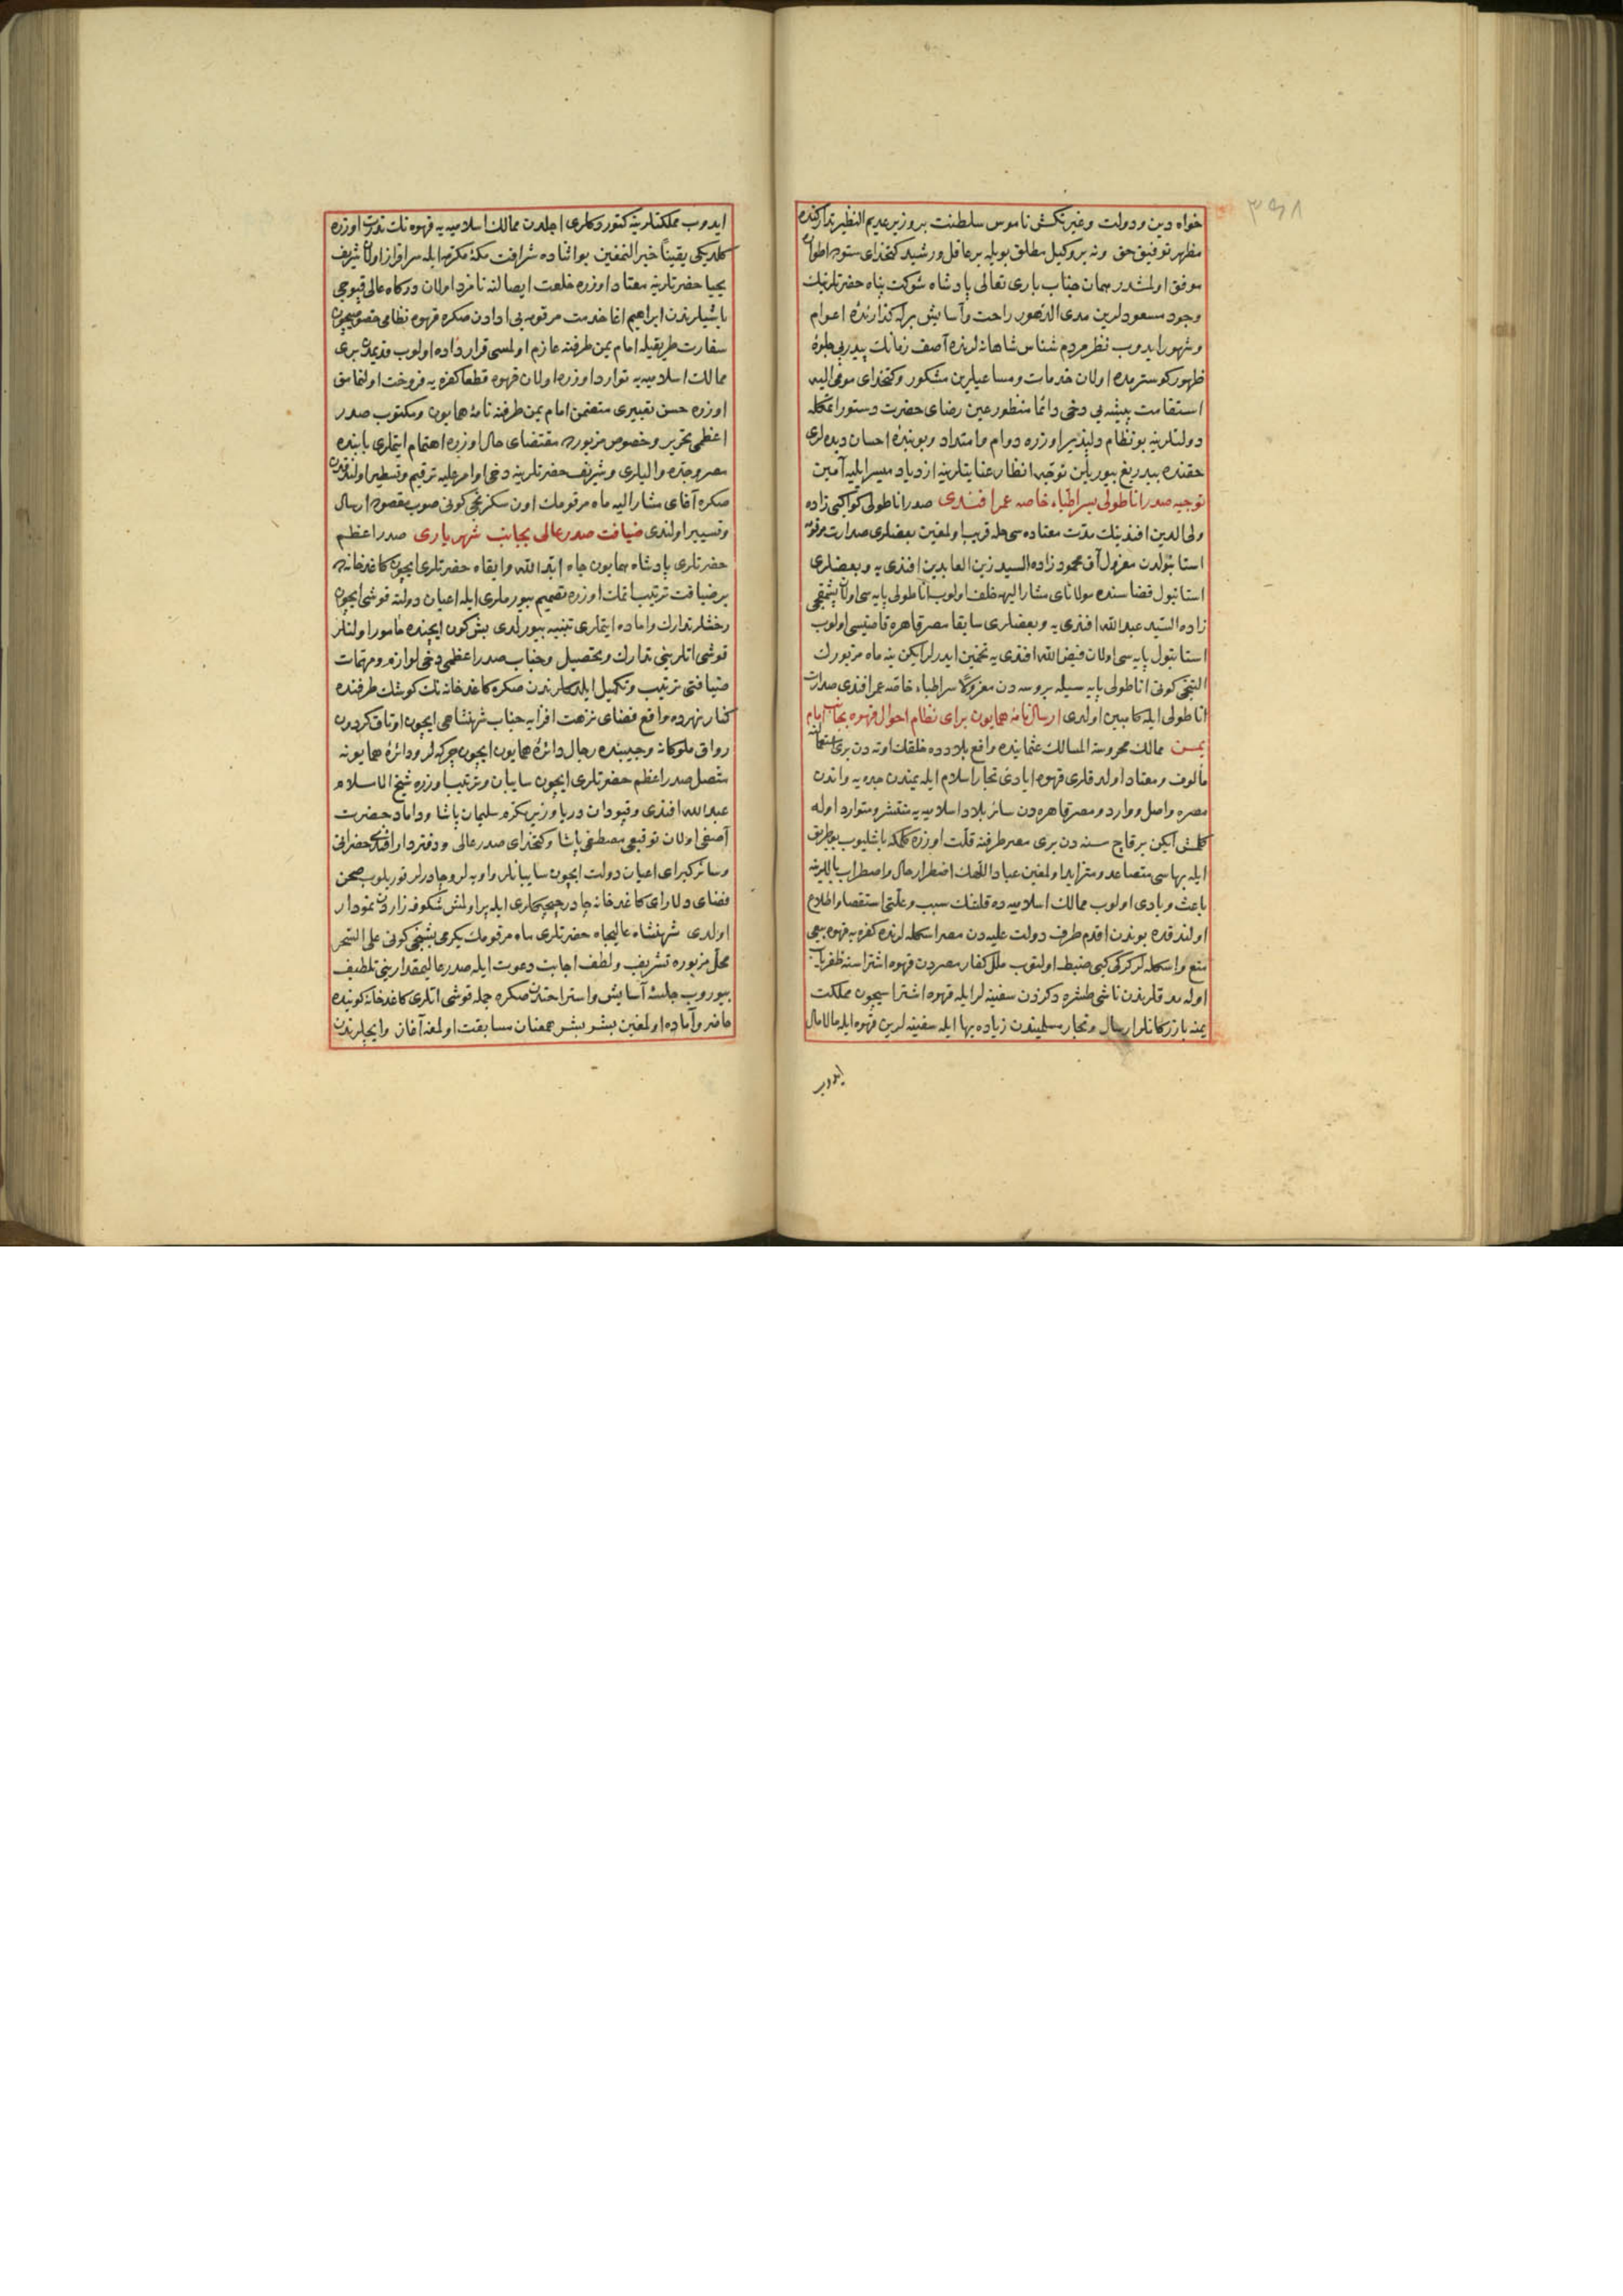 ٣٩٨
خواه دين و دولت و غيرتكش ناموس سلطنت بر وزير عديم النظير تداركنده
مظهر توفيق حق و نه بر وكيل مطلق بويله بر عاقل و رشيد كتخداى ستوده اطواره
موفق اولمشدر همان جناب بارى تعالى پادشاه شوكت پناه حضرتلرينك
وجود مسعودلرين مدى الدهور راحت و آسايش برله كذارندۀ اعوام
و شهور ايدوب نظر مردم شناس شاهانه لرنده آصف زمانك پيدرپى جلوۀ
ظهور كوسترمده اولان خدمات و مساعيلرين مشكور و كتخداى مومى اليه
استقامت پيشه يى دخى دائما منظور عين رضاى حضرت دستور اتمكله
دولتلرينه بو نظام دلپذير اوزره دوام و امتداد و بو بندۀ احسان ديده لرى
حقنده بيدريغ بيوريلن توجيه انظار عنايتلرينه ازدياد ميسر ايليه آمين
توجيه صدر اناطولى بسر اطباء خاصه عمر افندى صدر اناطولى كواكبى زاده
ولى الدين افندينك مدت معتاده سى حله قريب اولمغين بعضلرى صدارت مرقومه
استانبولدن معزول آق محمود زاده السيد زين العابدين افندى يه و بعضلرى
استانبول قضاسنده مولاناى مشار اليه خلف اولوب اناطولى پايه سى اولان پشمقجى
زاده السيد عبدالله افندى يه و بعضلرى سابقا مصر قاهره قاضيسى اولوب
استانبول پايه سى اولان فيض الله افندى يه تخمين ايدرلر ايكن ينه ماه مزبورك
التنجى كونى اناطولى پايه سيله بروسه دن معزولا سر اطباء خاصه عمر افندى صدارت
اناطولى ايله كامبين اولدى ارسال نامۀ همايون براى نظام احوال قهوه بجانب امام
يمن ممالك محروسة المسالك عثمانيده واقع بلادده خلقك اوته دن برى استعمالنه
مألوف و معتاد اولدقلرى قهوه ايادئ تجار اسلام ايله يمندن جده يه و اندن
مصره واصل و وارد و مصر قاهره دن سائر بلاد اسلاميه يه منتشر و متوارد اوله
كلمش ايكن بر قاچ سنه دن برى مصر طرفنه قلت اوزره كلمكه باشليوب بو طريق
ايله بهاسى متصاعد و متزايد اولمغين عباد اللهك اضطرار حال و اضطراب باللرينه
باعث و بادى اولوب ممالك اسلاميه ده قلتنك سبب و علتى استقصا و اطلاع
اولندقده بوندن اقدم طرف دولت عليه دن مصر اسكله لرنده كفره يه قهوه بيعى
منع و اسكله لر كركى كبى ضبط اولنوب ملل كفار مصردن قهوه اشتراسنه ظفرياب
اوله مدقلرندن ناشى طشره دكزدن سفينه لر ايله قهوه اشتراسيچون مملكت
يمنه بازركانلر ارسال و تجار مسلميندن زياده بها ايله سفينه لرين قهوه ايله مالامال
ايدوب
ايدوب مملكتلرينه كتوردكلرى اجلدن ممالك اسلاميه يه قهوه نك ندرت اوزره
كلديكى يقيناً خبر النمغين بو اثناده شرافت مكۀ مكرمه ايله سرافراز اولان شريف
يحيا حضرتلرينه معتاد اوزره خلعت ايصالنه نامزد اولان دركاه عالى قپوجى
باشيلرندن ابراهيم اغا خدمت مرقومه يى ادادن صكره قهوه نظامى خصوصيچون
سفارت طريقيله امام يمن طرفنه عازم اولمسى قرارداده اولوب قديمدن برى
ممالك اسلاميه يه توارد اوزره اولان قهوه قطعا كفره يه فروخت اولنمامق
اوزره حسن تعبيرى متضمن امام يمن طرفنه نامۀ همايون و مكتوب صدر
اعظمى تحرير و خصوص مزبوره مقتضاى حال اوزره اهتمام ايتملرى بابنده
مصر و جده واليلرى و شريف حضرتلرينه دخى اوامر عليه ترقيم و تسطير اولندقدن
صكره آغاى مشار اليه ماه مرقومك اون سكزنجى كونى صوب مقصوده ارسال
و تسيير اولندى ضيافت صدر عالى بجانب شهريارى صدر اعظم
حضرتلرى پادشاه همايون جاه ايده الله و ابقاه حضرتلرى ايچون كاغدخانه ده
بر ضيافت ترتيب ايتمك اوزره تصميم بيورملرى ايله اعيان دولته قوشى ايچون
رخشلر تدارك و اماده ايتملرى تنبيه بيورلدى بش كون ايچنده مامور اولنلر
قوشى اتلرينى تدارك و تحصيل و جناب صدر اعظمى دخى لوازم و مهمات
ضيافتى ترتيب و تكميل ايلدكلرندن صكره كاغدخانه نك كوشك طرفنده
كنار نهرده واقع فضاى نزهت افزايه جناب شهنشاهى ايچون اوتاق كردون
رواق ملوكانه و جيبنده رجال دائرۀ همايون ايچون چركه لر و دائرۀ همايونه
متصل صدر اعظم حضرتلرى ايچون سايبان و ترتيب اوزره شيخ الاسلام
عبدالله افندى و قپودان دريا وزير مكرم سليمان پاشا و داماد حضرت
آصفى اولان توقيعى مصطفى پاشا و كتخداى صدر عالى و دفتردار افندى حضراتى
و سائر كبراى اعيان دولت ايچون سايبانلر و اوبه لر و چادرلر قوريلوب صحن
فضاى دلاراى كاغدخانه چادر چيچكلرى ايله پر اولمش شكوفه زاردن نمودار
اولدى شهنشاه عاليجاه حضرتلرى ماه مرقومك يكرمى بشنجى كونى على السحر
محل مزبوره تشريف و لطف اجابت دعوت ايله صدر عاليمقدارينى تلطيف
بيوروب جلسۀ آسايش و استراحتدن صكره جمله قوشى اتلرى كاغدخانه كوينده
حاضر و آماده اولمغين بشر بشر همعنان مسابقت اولمغه آغاز و ايچلرندن